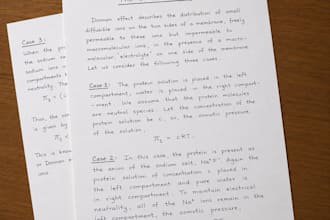 Donnan effect describes the distribution of small
diffusible ions on the two sides of a membrane, freely
permeable to these ions but impermeable to
macromolecular ions, in the presence of a macro-
molecular electrolyte on one side of the membrane
Let us consider the following three cases.
Case 1: The protein solution is placed in the left
compartment, water is placed in the right compart
-ment. We assume that the protein molecules
are neutral species. Let the concentration of the
protein solution be c, so, the osmotic pressure
of the solution,
π₁ = cRT.
Case 2: In this case, the protein is present as
the anion of the sodium salt, Again the
protein solution of concentration c placed in
the left compartment and pure water in
right compartment. To maintain electrical
neutrality, all of the Na⁺ ions remain in the
left compartment, the osmotic pressure,
Case 3:
When the
the sodium
sodium ions
compartments
neutrality. The
Thus, the
is given by
This is
or Donnan
ions